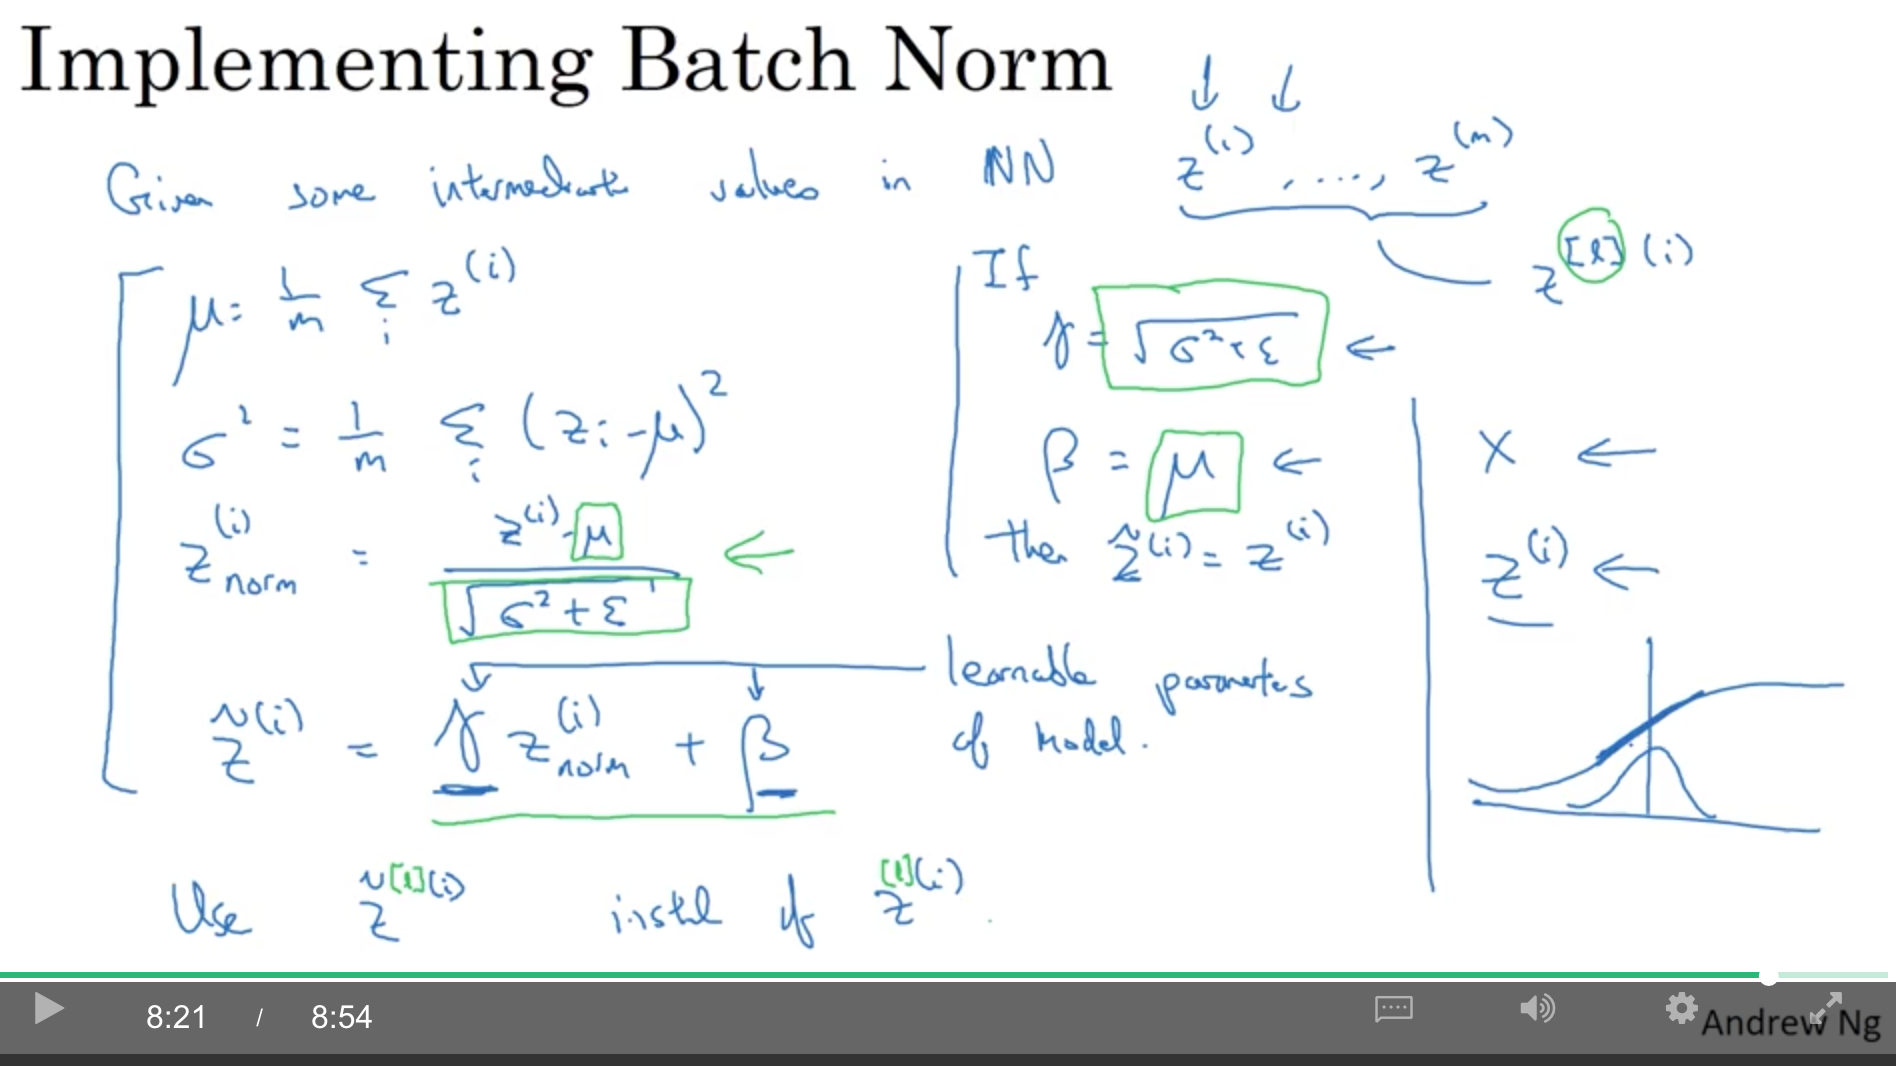 Implementing Batch Norm
Given some intermediate values in NN z^(1), ...., z^(m)
z^[l](i)
μ = 1/m Σ_i z^(i)
σ² = 1/m Σ_i (z_i - μ)²
z^(i)_norm = (z^(i) - μ) / √(σ² + ε)
z̃^(i) = γ z^(i)_norm + β
If
γ = √(σ² + ε) ←
β = μ ←
then z̃^(i) = z^(i)
learnable parameters
of model.
X ←
z^(i) ←
Use z̃^[l](i) instead of z^[l](i).
8:21 / 8:54
Andrew Ng